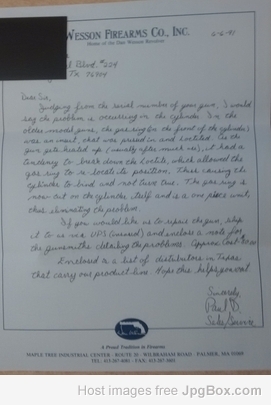 Wesson Firearms Co., Inc.
Home of the Dan Wesson Revolver
6-6-91
Blvd. #224
TX 76904
Dear Sir,
Judging from the serial number of your gun, I would
say the problem is occurring in the cylinder. In the
older model guns, the gas ring (on the front of the cylinder)
was an insert, that was pressed in and loctited. As the
gun gets heated up (usually after much use), it had a
tendency to break down the loctite, which allowed the
gas ring to re-locate its position, thus causing the
cylinder to bind and not turn true. The gas ring is
now cut on the cylinder itself and is a one piece unit,
thus eliminating the problem.
If you would like us to repair the gun, ship
it to us via UPS (insured) and enclose a note for
the gunsmiths detailing the problems. Approx Cost
Enclosed is a list of distributors in Texas
that carry our product line. Hope this helps you out.
Sincerely,
Paul
Sales/Service
A Proud Tradition in Firearms
MAPLE TREE INDUSTRIAL CENTER · ROUTE 20 · WILBRAHAM ROAD · PALMER, MA 01069
Host images free JpgBox.com